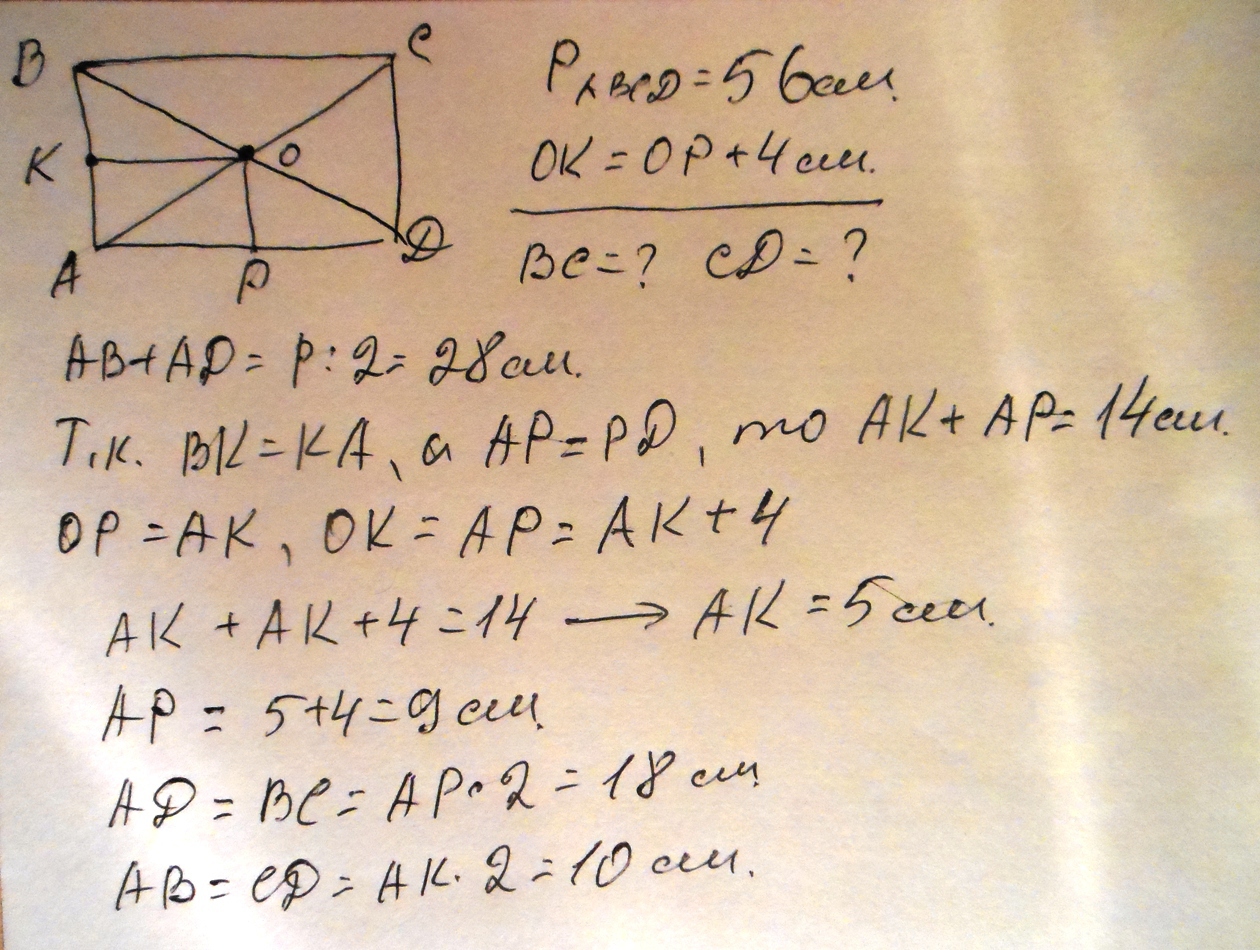 B
C
K
O
A
P
D
P ABCD = 56см.
OK = OP + 4 см.
BC = ? CD = ?
AB + AD = P : 2 = 28 см.
Т.к. BK = KA, а AP = PD, то AK + AP = 14 см.
OP = AK, OK = AP = AK + 4
AK + AK + 4 = 14 → AK = 5 см.
AP = 5 + 4 = 9 см.
AD = BC = AP · 2 = 18 см
AB = CD = AK · 2 = 10 см.